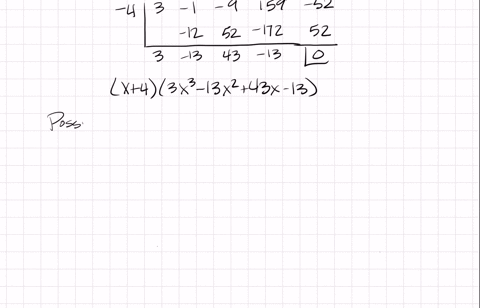 -4 | 3 -1 -9 159 -52
-12 52 -172 52
3 -13 43 -13 0
(x+4)(3x³-13x²+43x-13)
Poss.